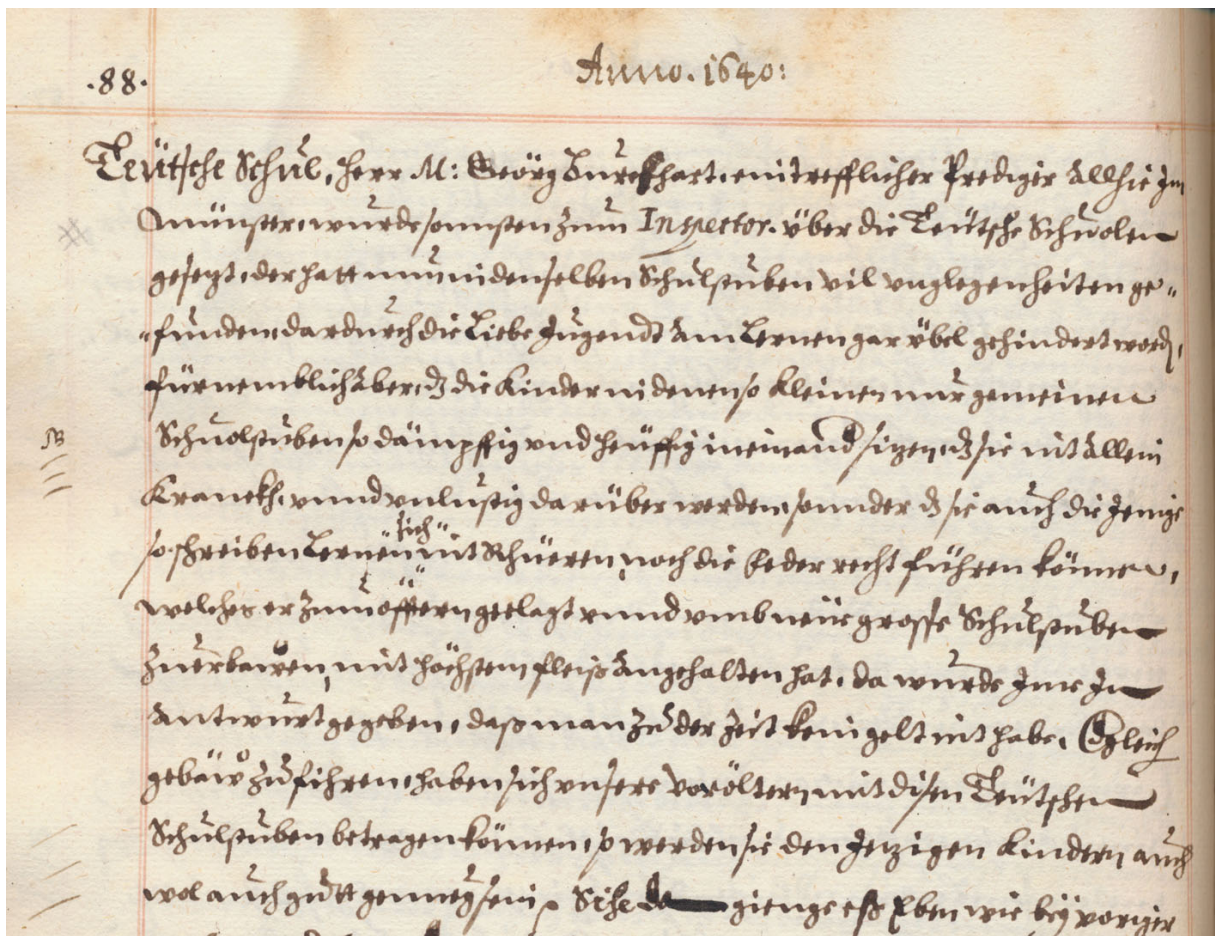 .88.
Anno. 1640:
Teütsche Schul, Herr M: Geörg Burckhart, ein trefflicher Prediger allhie Im
Münster, wurde sonnsten zum Inspector. über die Teütsche Schuolen
gesezt, der hatt nun in denselben Schulstuben vil vnglegenheiten ge„
„funden, dardurch die Liebe Jugendt am Lernen gar übel gehindert word,
fürnemblich aber, dz die Kinder in denen so kleinen nur gemeinen
NB
Schuolstuben so dämpffig vnd heüffig ineinand sizen, dz sie nit allein
Kranckh, vnnd vnlustig darüber werden, sonnder dz sie auch die Jenige
so schreiben Lernen sich nit Rhüeren, noch die feder recht führen können,
welches er zum öfftern geclagt vnnd vmb neüe grosse Schulstuben
zuerbawen, mit höchstem fleiß angehalten hat, da wurde Ime In
Antwurt gegeben, daß man zu der Zeit kein gelt nit habe, dgleich
gebäw zu führen, haben sich vnsere Vorältern, mit disen Teütschen
Schulstuben betragen können, so werden sie den Jezigen Kindern auch
wol auch gutt genueg sein. Sihe da gienge esß Eben wie bey voriger